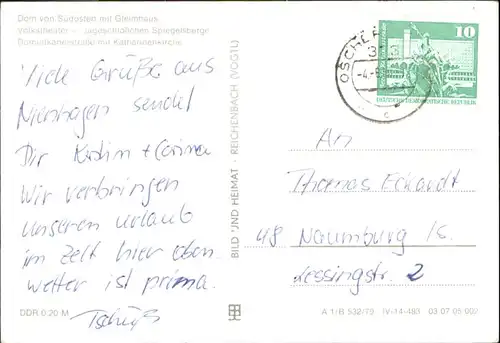 Dom von Südosten mit Gleimhaus
Volkstheater - Jagdschlößchen Spiegelsberge
Dominikanerstraße mit Katharinenkirche
Viele Grüße aus
Nienhagen sendet
Dir Katrin + Corina
Wir verbringen
unseren Urlaub
im Zelt hier oben
Wetter ist prima.
Tschüß
DDR 0.20 M
BILD UND HEIMAT · REICHENBACH (VOGTL)
10
DEUTSCHE DEMOKRATISCHE REPUBLIK
An
Thomas Eckardt
48 Naumburg /S.
Lessingstr. 2
A 1/B 532/79 IV-14-483 03 07 05 002